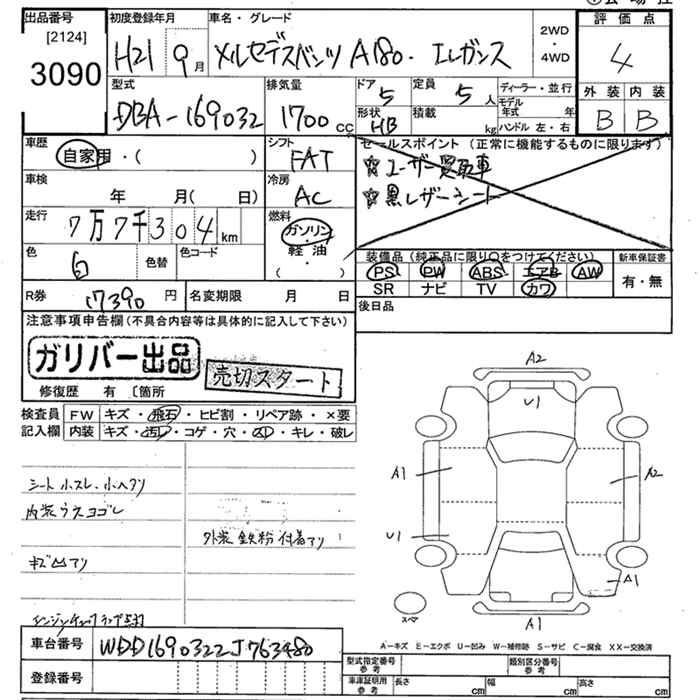 出品番号 初度登録年月 車名・グレード
[2124]
3090 H21 9月 メルセデスベンツ A180. エレガンス 2WD・4WD
評価点
4
外装 内装
B B
型式 DBA-169032
排気量 1700cc
ドア 5
定員 5人
ディーラー・並行
形状 HB
積載 kg
モデル年式 年
ハンドル 左・右
車歴 自家用・( )
シフト FAT
セールスポイント (正常に機能するものに限ります)
☆ユーザー買取車
☆黒レザーシート
車検 年 月( 日)
冷房 AC
走行 7万7千304km
燃料 ガソリン・軽油
( )
色 白 色替 色コード
装備品(純正品に限り○をつけてください)
PS PW ABS エアB AW
SR ナビ TV カワ
新車保証書
有・無
R券 17390円 名変期限 月 日
後日品
注意事項申告欄(不具合内容等は具体的に記入して下さい)
ガリバー出品
売切スタート
修復歴 有 〔箇所
検査員 FW キズ・飛石・ヒビ割・リペア跡・×要
記入欄 内装 キズ・汚レ・コゲ・穴・スレ・キレ・破レ
シート小スレ、小ヘタリ
内装ウスヨゴレ
外装 鉄粉付着アリ
キズ凹アリ
エンジンチェックランプ点灯
A2
U1
A1
A2
U1
A1
スペア
A1
車台番号 WDD1690322J763480
登録番号
A-キズ E-エクボ U-凹み W-補修跡 S-サビ C-腐食 XX-交換済
型式指定番号 参考 類別区分番号 参考
車庫証明用 参考 長さ cm 幅 cm 高さ cm